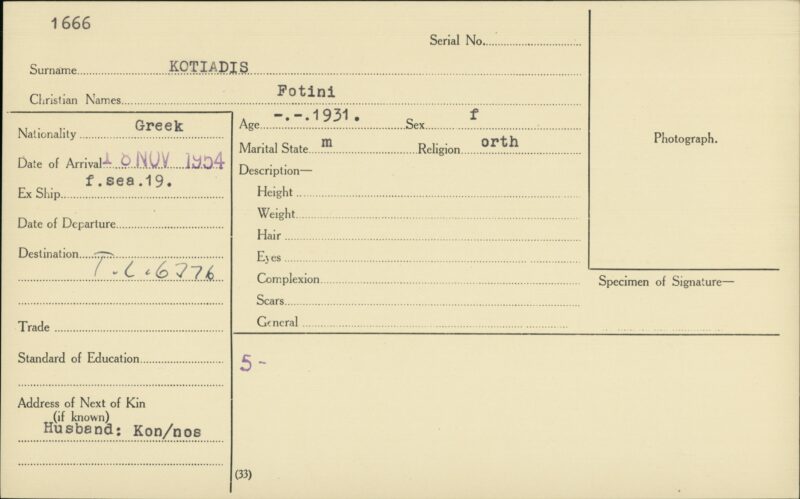 1666
Serial No.
Surname KOTIADIS
Christian Names Fotini
Nationality Greek
Age -.-.1931. Sex f
Date of Arrival 18 NOV 1954
Marital State m Religion orth
Ex Ship f.sea.19.
Description—
Height
Weight
Date of Departure
Hair
Destination T.L.6376
Eyes
Complexion
Scars
Trade
General
Standard of Education
Address of Next of Kin
(if known)
Husband: Kon/nos
5 -
(33)
Photograph.
Specimen of Signature—